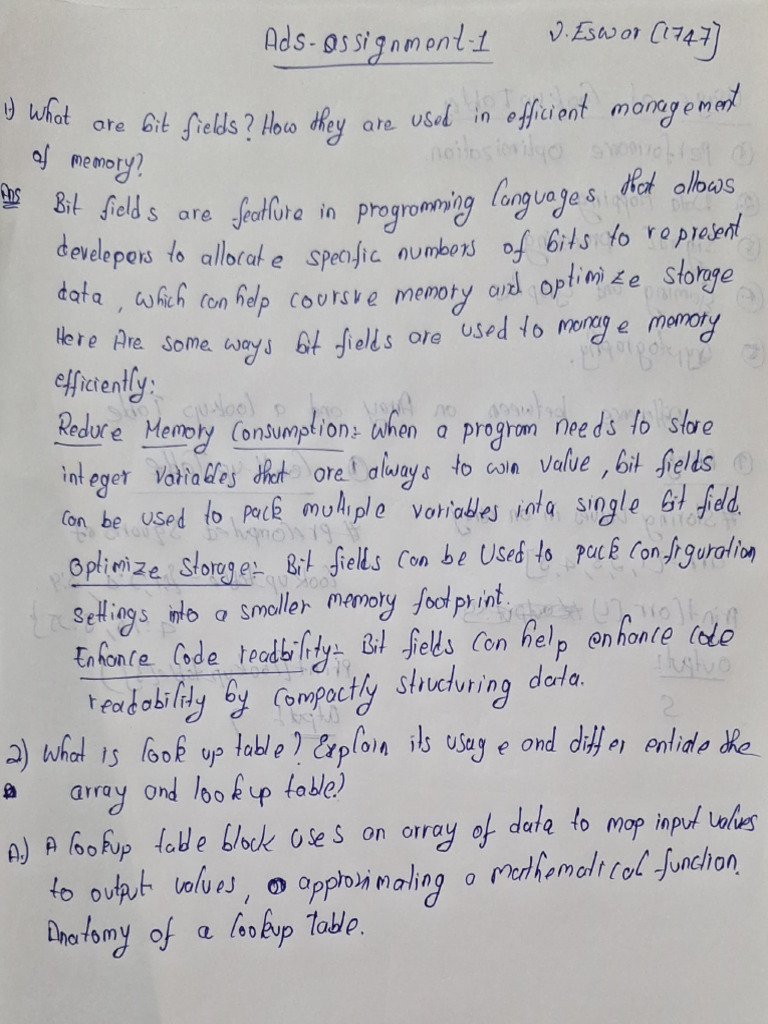 Ads-assignment-1 V.Eswar [1747]
1) What are bit fields? How they are used in efficient management
of memory?
Ans Bit fields are featfure in programming languages that allows
develepers to allocate specific numbers of bits to represent
data, which can help coursve memory and optimize storage
Here Are some ways bit fields are used to manage memory
efficiently:
Reduce Memory Consumption:- When a program needs to store
integer variables that are always to win value, bit fields
can be used to pack multiple variables inta single bit field.
Optimize Storage:- Bit fields can be Used to pack configuration
settings into a smaller memory footprint.
Enhance Code readbility:- Bit fields can help enhance code
readability by compactly structuring data.
2) What is look up table? Explain its usage and differentiate the
array and lookup table?
A.) A lookup table block uses an array of data to map input values
to output values, approximating a mathematical function.
Anatomy of a lookup table.